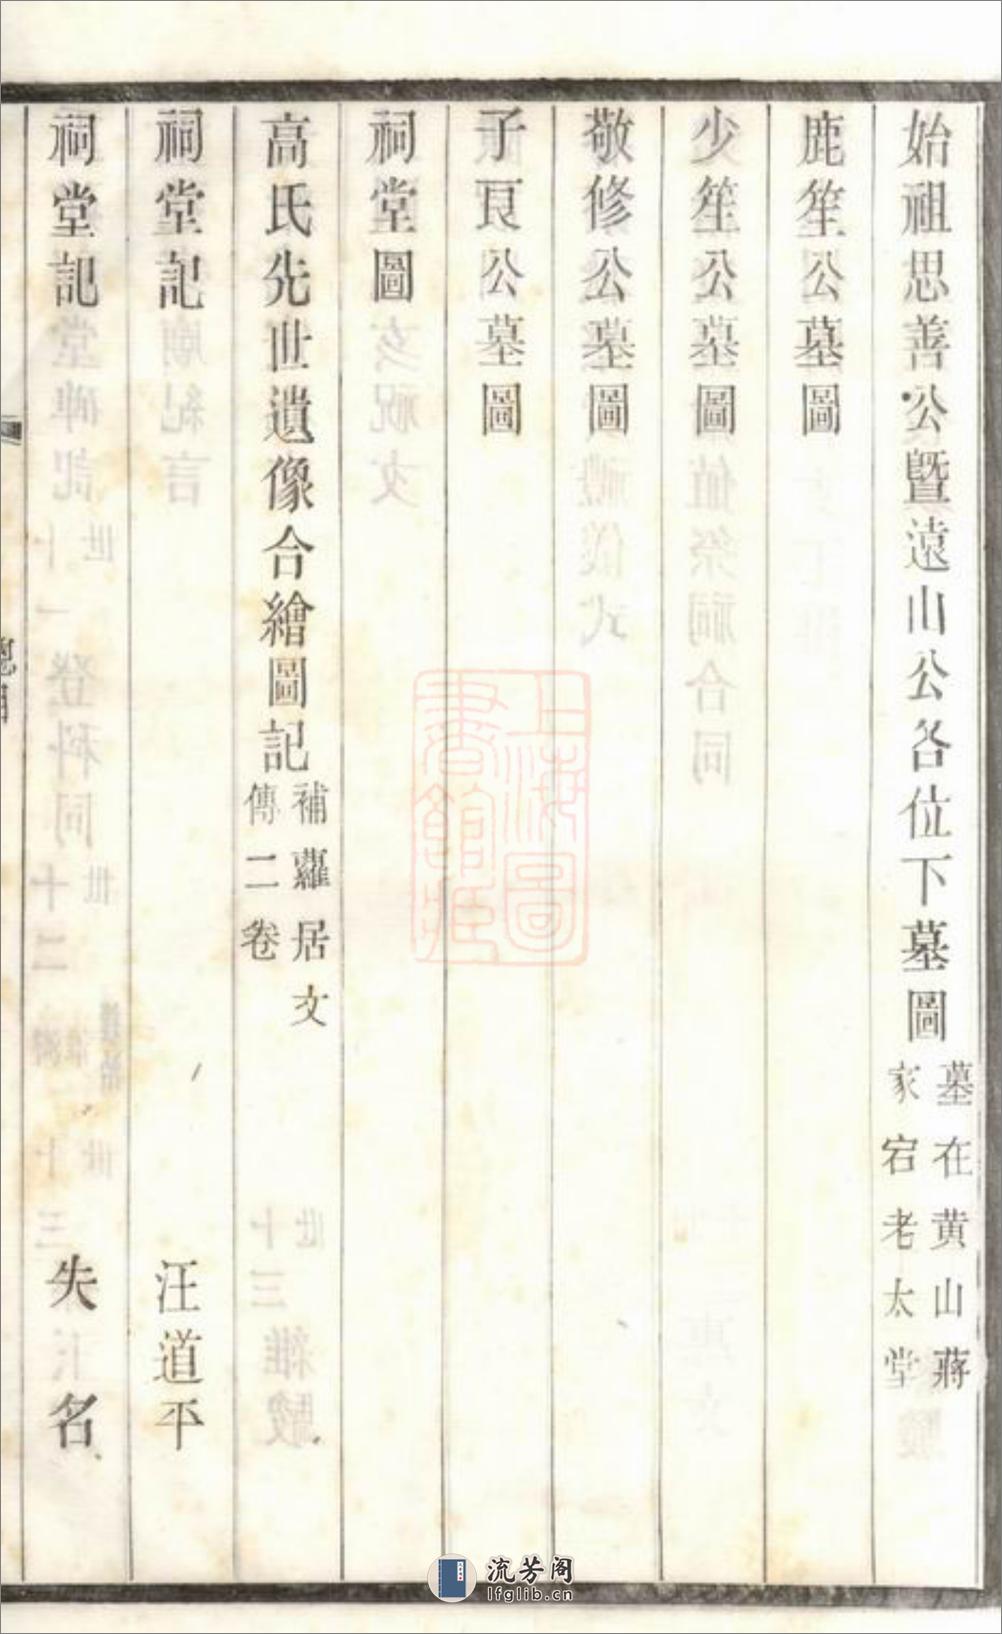 始祖思善公曁遠山公各位下墓圖
墓在黄山蔣
家宕老太堂
鹿笙公墓圖
少笙公墓圖
敬修公墓圖
子良公墓圖
祠堂圖
高氏先世遺像合繪圖記
補蘿居文
傳二卷
祠堂記 汪道平
祠堂記 失名
上海圖
書館藏
流芳阁
lfglib.cn